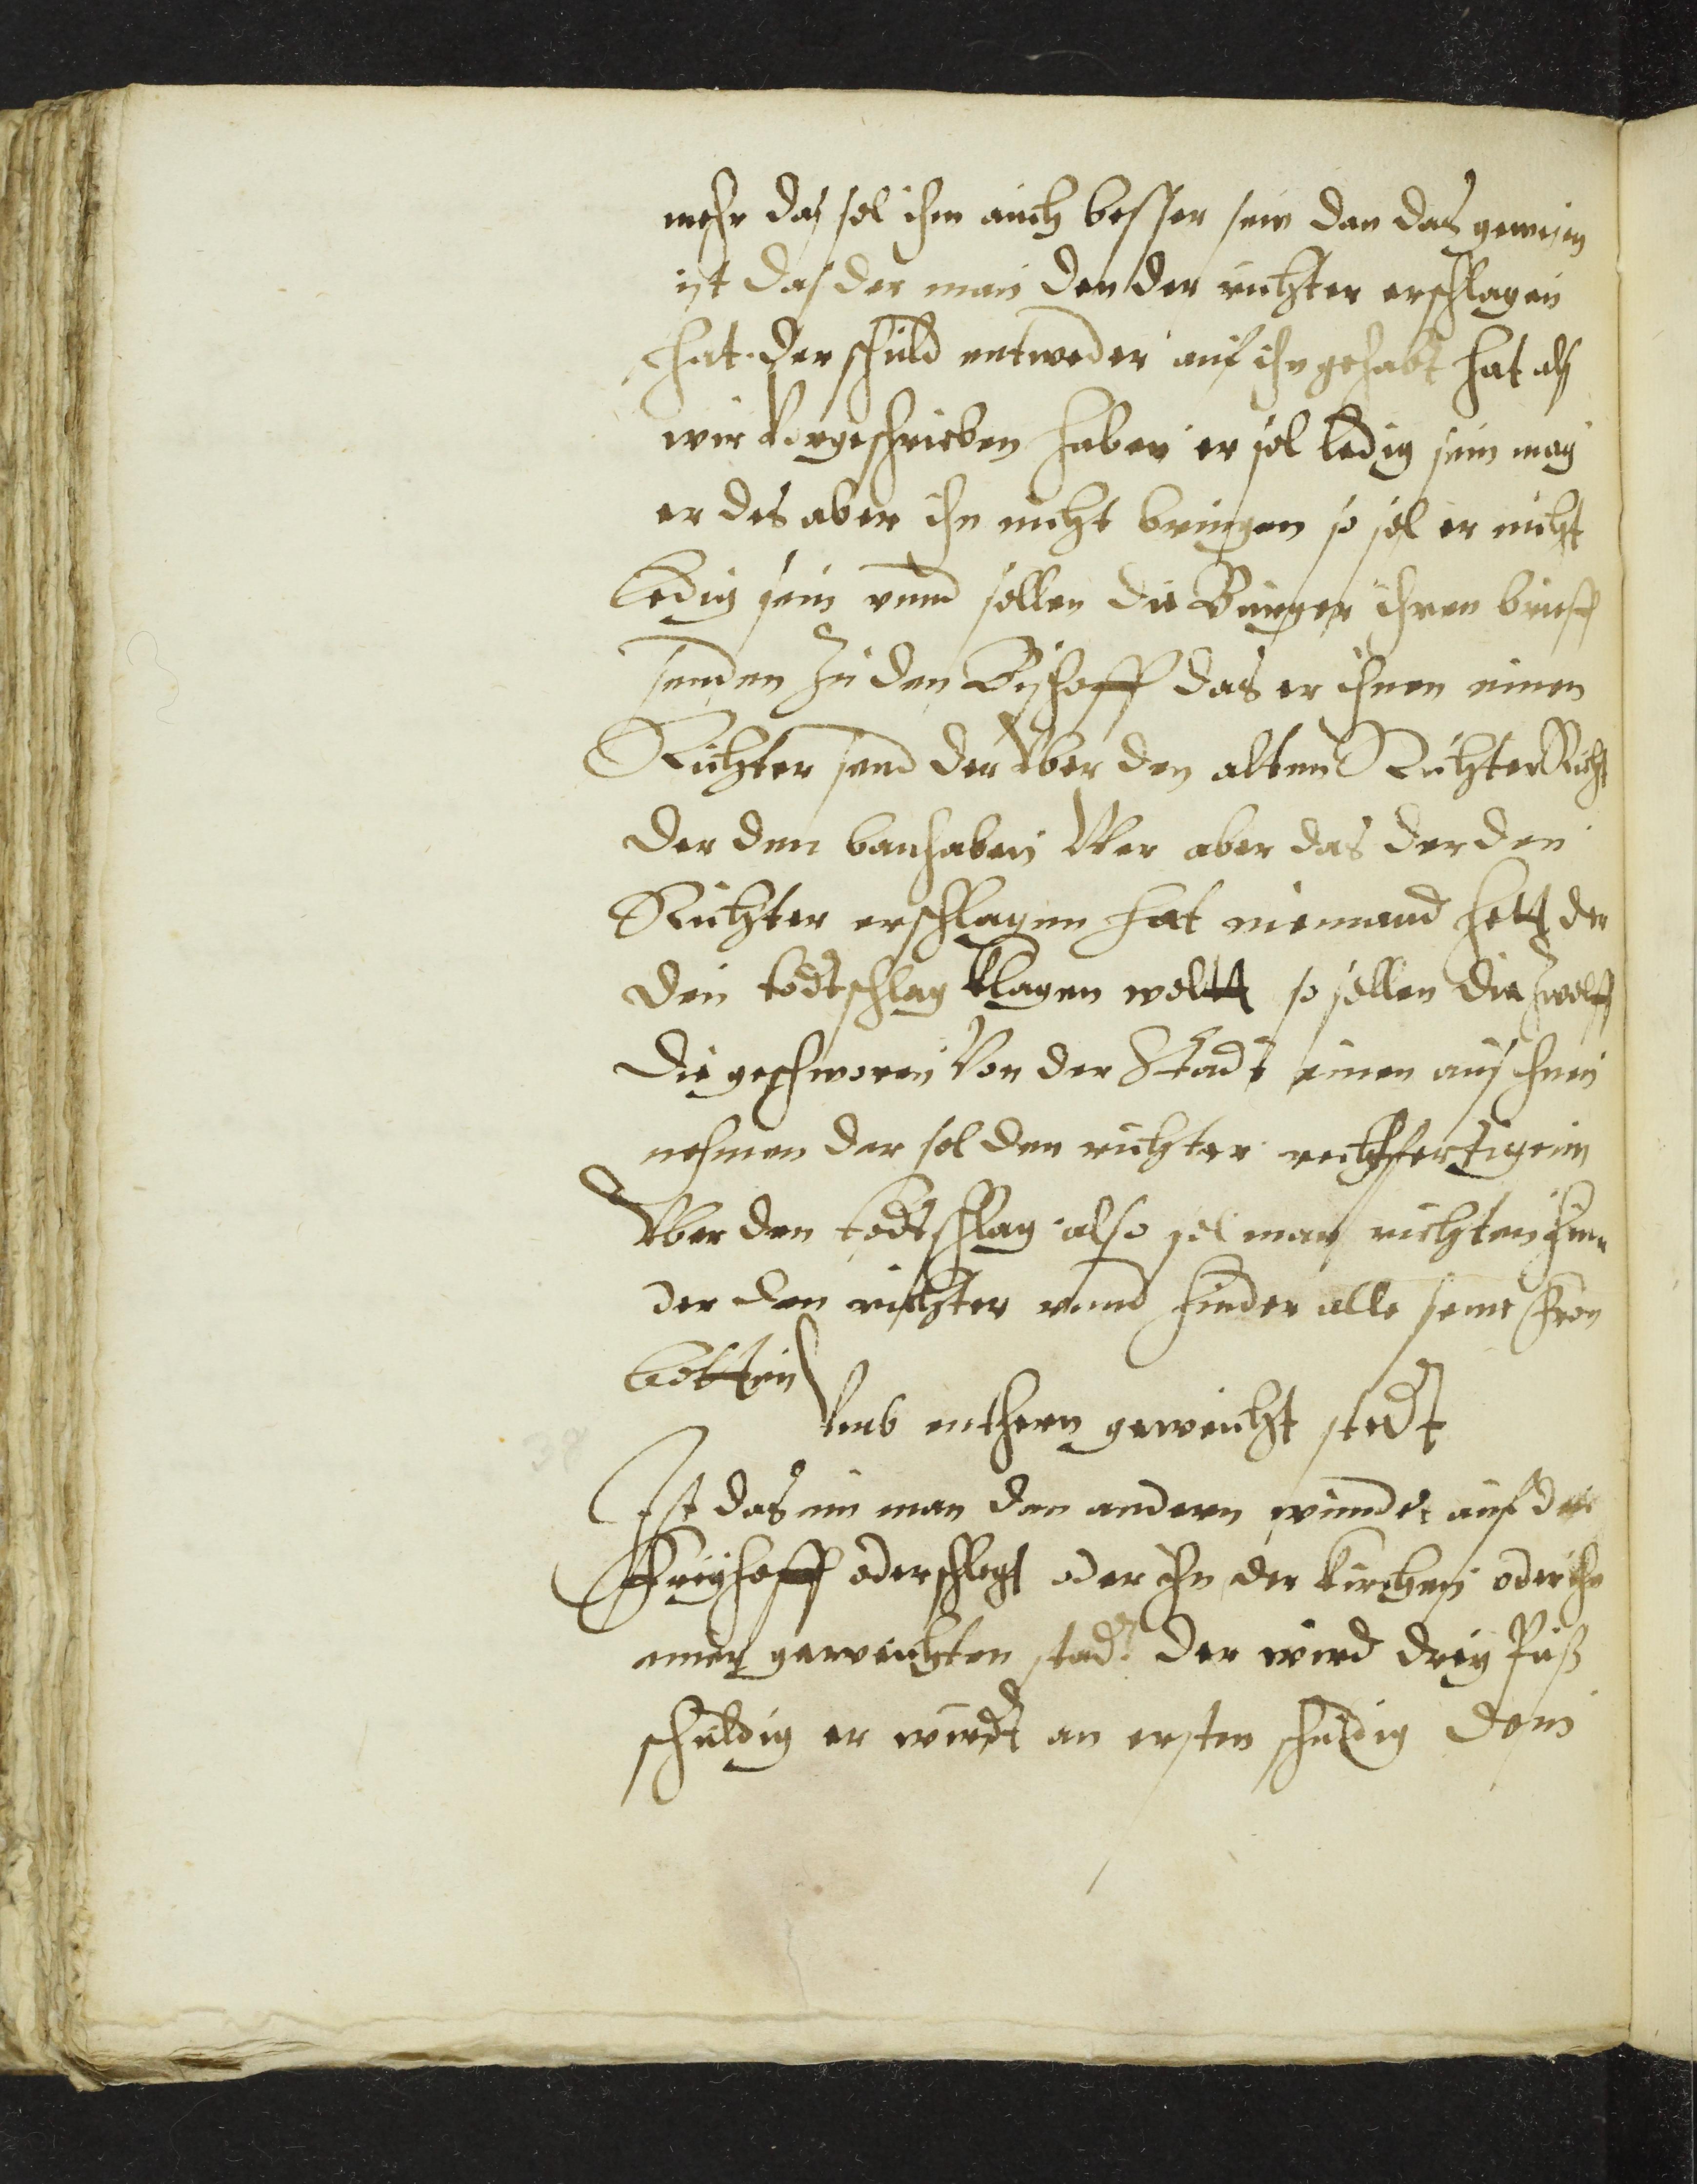 mehr das sol ihm auch besser sein dan das gemein
ist das der man den der richter erschlagen
hat der schuld entweder auf ihn gehabt hat als
wir Vorgeschrieben haben er sol ledig sein mag
er des aber ihn nicht bringen so sol er nicht
ledig sein vnnd sollen die Burger ihren brieff
senden zu den Bischoff das er ihnen einen
Richter send der Vber den alten Richter Richt
der den ban haben Wer aber das der den
Richter erschlagen hat niemand hett der
den todtschlag klagen woltt so sollen die zwelff
die geschworen Von der Stadt einen aus ihnen
nehmen der sol den richter rechtfertigenn
Vber den todtschlag also sol man richten hin
der den richter vnnd hinder alle seine fron
botten
Vmb entheren geweicht stedt
38
Ist das ein man den andern wundet auf den
Freyhoff oder schlegt oder ihn der kirchen oder ihn
einer geweichten stadt der wird drey Puß
schuldig er wirdt an ersten schuldig dem